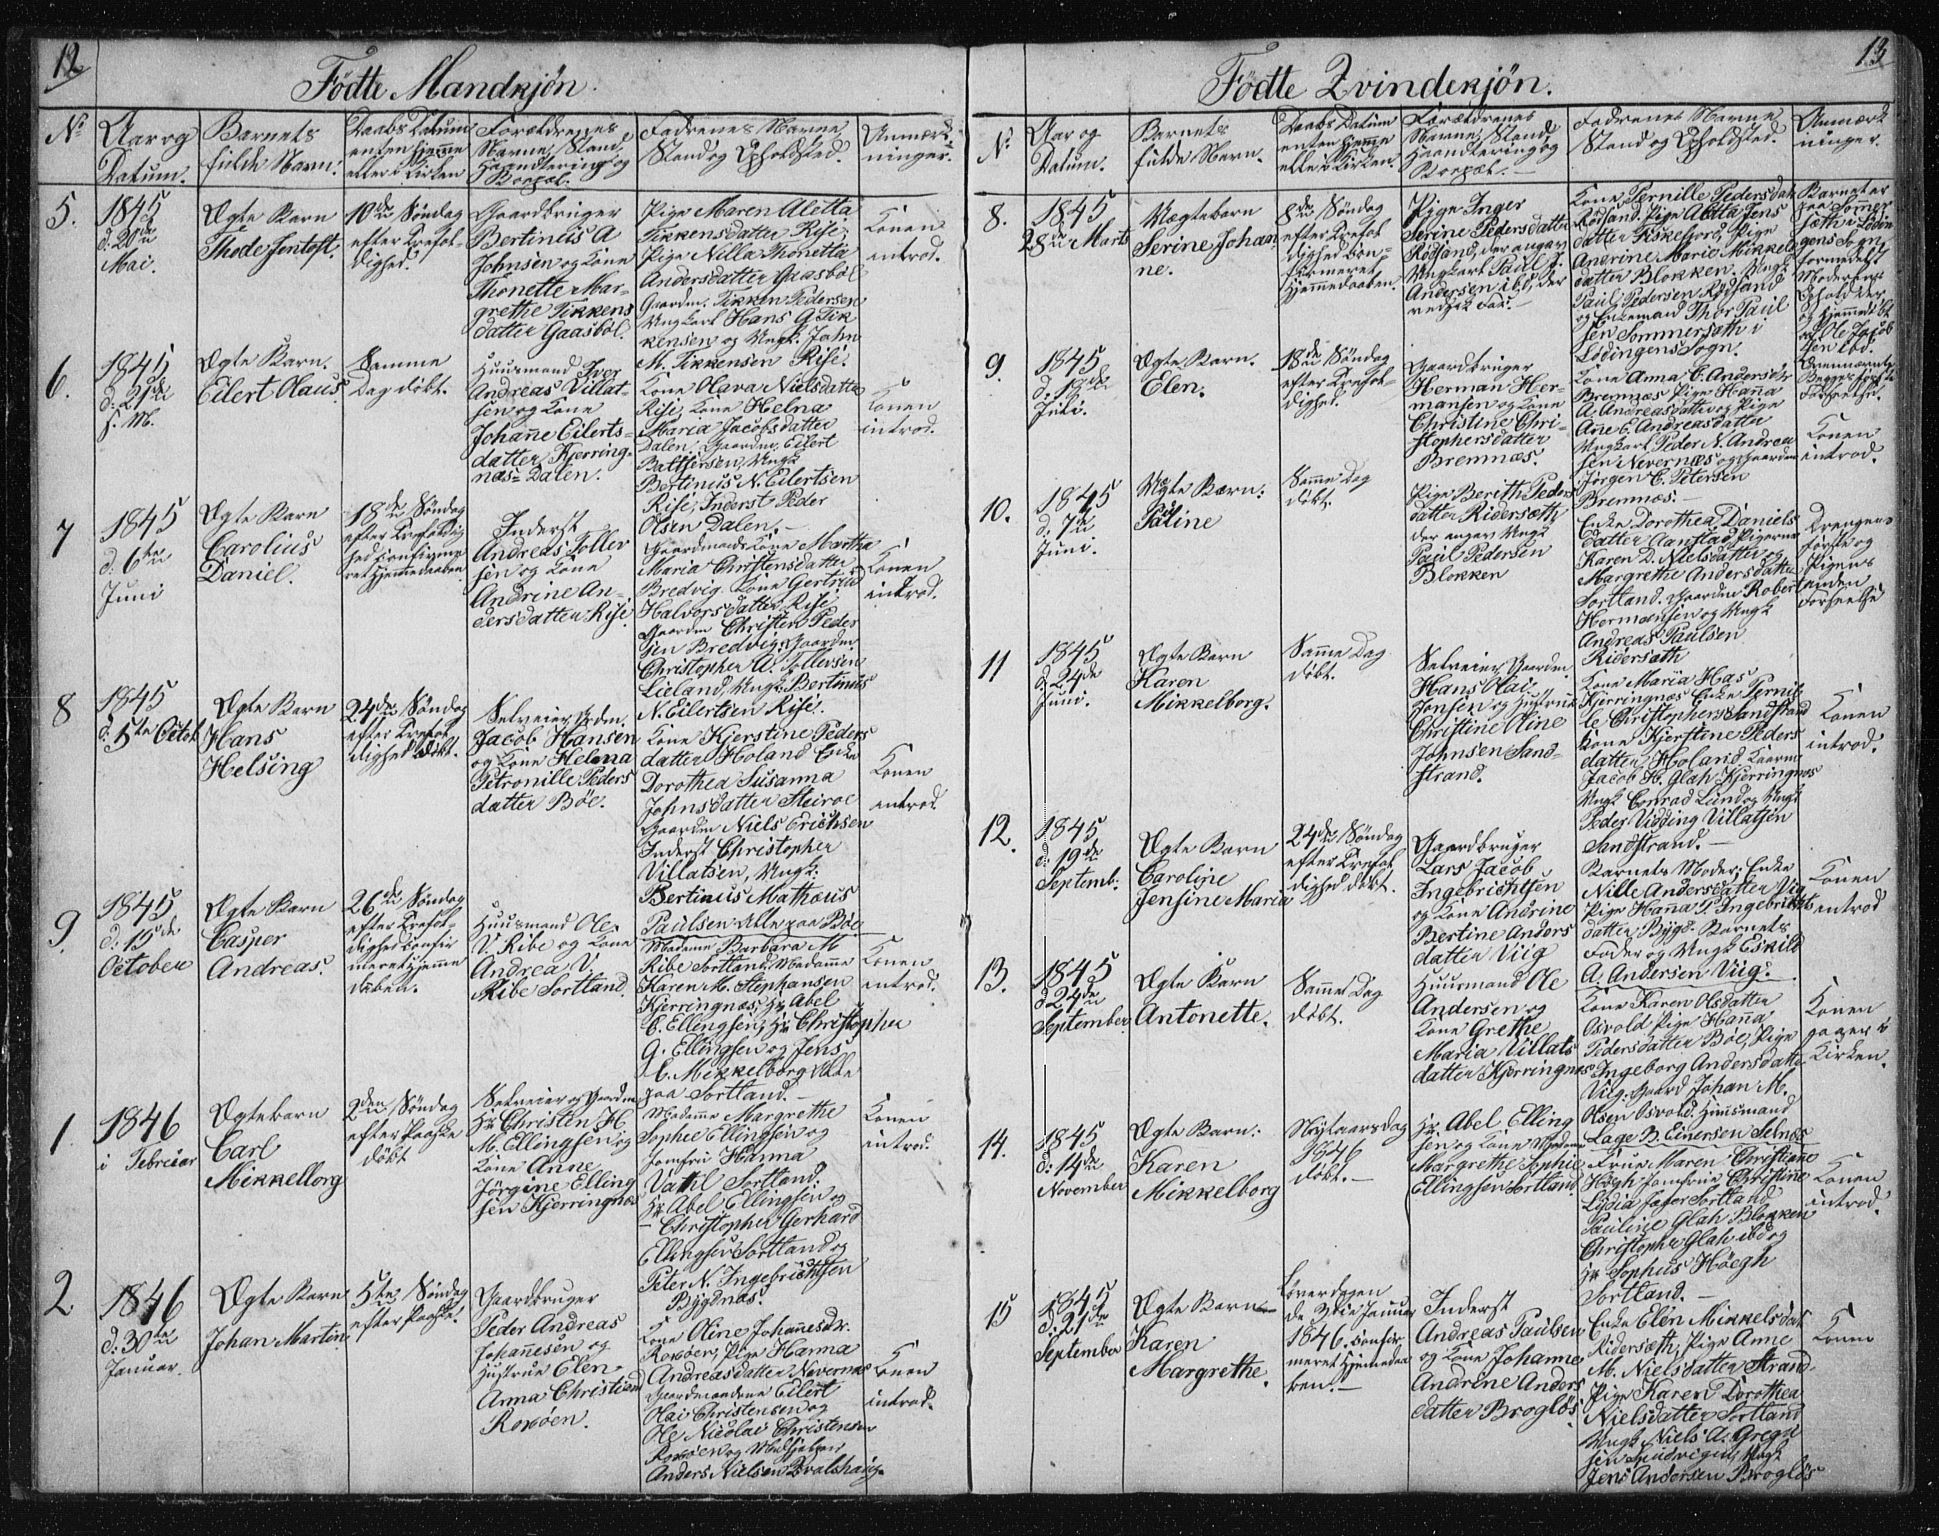 12
Födte Mandkjön.
No
Aar og
Datum.
Barnets
fulde Navn.
Daabs Datum
enten hjemme
eller i Kirken
Forældrenes
Navne, Stand,
Haandtering og
Bopæl.
Fadrenes Navne
Stand og Opholdsted.
Anmærk-
ninger.
5.
1845
d. 20de
Mai.
Ægte Barn
Thode Jentoft.
10de Søndag
efter Trefol-
dighed.
Gaardbruger
Bertinius A
Johnsen og Kone
Thonette Mar-
grethe Tikkens
datter Gaasböl.
Pige Maren Aletta
Tikkensdatter Rise,
Pige Nilla Thonetta
Andersdatter Gaasböl
Gaardm. Tikken Pedersen
Ungkarl Hans G. Tik
kensen og Ungk. John
M. Tikkensen Rise.
Konen
introd.
6.
1845
d. 21de
s. M.
Ægte Barn.
Eilert Olaus
Samme
Dag döbt.
Huusmand Iver
Andreas Villat-
sen og Kone
Johanne Eilerts-
datter Kjerring-
næs-Dalen.
Kone Olava Nielsdatter
Rise, Kone Helna
Maria Jacobsdatter
Dalen, Gaardm. Eilert
Balthersen, Ungk
Bertinius N. Eilertsen
Rise, Inderst Peder
Olsen Dalen.-
Konen
introd.
7
1845
d. 6te
Juni
Ægte Barn
Carolius
Daniel.
18de Søndag
efter Trefoldig
hed confirme
ret Hjemmedaaben
Inderst
Andreas Toller
sen og Kone
Andrine An-
dersdatter Rise
Gaardmands Kone Martha
Maria Christensdatter
Bredvig. Kone Gertrud
Halvorsdatter Rise
Gaardm Christen Peder
sen Bredvig, Gaardm.
Christopher A. Tollevsen
Lieland, Ungk: Bertinius
N. Eilertsen Rise.
Konen
introd.
8
1845
d. 5te Octob
Ægte Barn
Hans
Helsing
24de Søndag
efter Trefol
dighed döbt.
Selveier Grdm.
Jacob Hansen
og Kone Helena
Petronille Peders
datter Böe.
Kone Kjerstine Peders
datter Holand Enke
Dorothea Susanna
Johnsdatter Steiroe
Gaardm Niels Erichsen
Inderst Christopher
Villatsen, Ungk:
Bertinius Mathæus
Paulsen Alle paa Böe
Konen
introd.
9.
1845
d. 15de
October
Ægte Barn
Casper
Andreas.
26de Søndag
efter Trefol-
dighed confir
meret Hjemme
daben.
Huusmand Ole
V. Ribe og Kone
Andrea V.
Ribe Sortland.
Madame Barbara M
Ribe Sortland, Madamme
Karen M. Stephansen
Kjerringnæs, Hr Abel
C. Ellingsen, Hr Christopher
G. Ellingsen og Jens
C. Mikkelborg Alle
paa Sortland.-
Konen
introd.
1.
1846
i Februar
Ægtebarn
Carl
Mikkelborg
2den Søndag
efter Paaske
döbt
Selveier og Gaardm
Hr Christen H.
M. Ellingsen og
Kone Anne
Jörgine Elling
sen Kjerringnæs
Madamme Margrethe
Sophie Ellingsen og
Jomfru Hanna
Sortland:
Hr Abel Ellingsen og
Christopher Gerhard
Ellingsen Sortland og
Peter N. Ingebrichtsen
Bygdnæs.
Konen
introd.
2
1846
d. 30te
Januar.
Ægte Barn
Johan Martin.
5te Søndag
efter Paaske.
Gaardbruger
Peder Andreas
Johannesen og
Hustrue Elen
Anna Christiand
Roksöen.
Kone Oline Johannesdr.
Roksöen, Pige Hanna
Andreasdatter Nevernæs
Gaardmændene Eilert
Olai Christensen og
Ole Nicolai Christensen
Roksöen og
Anders Nielsen Hvalshaug.
Konen
introd.
13
Födte Qvindekjön.
No
Aar og
Datum.
Barnets
fulde Navn.
Daabs Datum
enten hjemme
elle i Kirken.
Forældrenes
Navne, Stand
Haandtering og
Bopæl.-
Fadrenes Navne
Stand og Opholdsted.
Anmærk
ninger.
8.
1845
28de Marts
Uægtebarn
Serine Johan
ne.
8de Søndag
efter Trefol
dighed con-
firmeret
Hjemmedaaben.
Pige Inger
Serine Pedersdatter
Rödsand, der angav
Ungkarl Paul
Andersen ibd, der
vedgik Far.-
Kone Pernille Pedersdatt
Rödsand. Pige Aletta Jens
datter Fiskefjord, Pige
Andrine Marie Mikkels
datter Blokken. Ungk
Paul Pedersen Rödsand
og Enkemand Thor Paul
sen Sommersæth i
Lödingens Sogn.
Barnet er
paa Somer
sæth i Lödin
gens Sogn
formedelst
Moderens
Ophold der
og hjemdöbt
af Ole Jacob
sen ibd.
Ovennævnte
Begges första
Forseelse.
9.
1845
d. 13de
Juli.
Ægte Barn.
Elen.
18de Søndag
efter Trefol-
dighed.
Gaardbruger
Herman Her-
mansen og Kone
Christine Chri-
stophersdatter
Bremnæs.
Kone Anna C. Andersdr
Bremnæs Pige Hanna
A. Andreasdatter og Pige
Ane E. Andreasdatter
Ungkarl Peder N. Andrea
sen Nevernæs og Gaardm
Jörgen C. Petersen
Bremnæs.-
Konen
introd.
10.
1845
d. 7de
Juni.
Uægte Barn.
Pauline
Samme Dag
döbt.
Pige Berith Peders
datter Ridersæth
der angav Ungk
Poul Pedersen
Blokken
Enke Dorothea Daniels
datter Aanstad, Pigerne
Karen D. Nielsdatter og
Margrethe Andersdatter
Sortland. Gaardm Robert
Hermansen og Ungk
Andreas Paulsen
Ridersæth
Drengens
förste og
Pigens
anden
Forseelse
11
1845
d. 24de
Juni.
Ægte Barn
Karen
Mikkelborg.
Samme Dag
döbt.
Selveier Gaardm.
Hans Olai
Jensen og Hustrue
Christine Oline
Johnsen Sand-
strand.
Kone Maria Has
Kjerringnæs Enke Pernil
le Christophers Sandstrand
Kone Kjerstine Peders
datter Holand
Jacob H. Glah Kjerringnæs
Ungk Conrad Lund og Ungk
Peder Vidding Villatsen
Sandstrand.-
Konen
introd.
12.
1845
d. 19de
Septemb.
Ægte Barn
Caroline
Jensine Maria
24de Søndag
efter Trefol
dighed döbt.
Gaardbruger
Lars Jacob
Ingebrichtsen
og Kone Andrine
Bertine Anders
datter Viig
Barnets Moder; Enke
Nille Andersdatter Viig
Pige Hanna P. Ingebrichts
datter Bygd. Barnets
Fader og Ungk Eskild
A. Andersen Viig.
Konen
introd
13.
1845
d. 24de
September
Ægte Barn
Antonette.
Samme Dag
döbt.
Huusmand Ole
Andersen og
Kone Grethe
Maria Villats
datter Kjerringnæs
Kone Karen Olsdatter
Osvold Pige Hanna
Pedersdatter Böe, Pige
Ingeborg Andersdatter
Viig. Gaard Johan M.
Olsen Osvold. Huusmand
Lage B. Einersen Selnæs
Konen
gaaer i
Kirken.
14.
1845
d. 14de
November
Ægte Barn:
Karen
Mikkelborg
Nytaarsdag
1846
döbt.-
Hr Abel Elling
sen og Kone Madame
Margrethe Sophie
Ellingsen Sortland.
Frue Maren Christiane
Högh Jomfrue Christine
Lydia Sortland
Pauline Glah Blokken
Christopher Glah ibd og
Hr Sophus Höegh
Sortland.-
Konen
introd.
15
1845
d. 21de
September
Ægte Barn
Karen
Margrethe.
Löverdagen
de 3die Januar
1846. confir
meret Hjemmedaa
ben.-
Inderst
Andreas Paulsen
og Kone Johanne
Andrine Anders
datter Broglös.
Enke Elen Mikkelsdat
Ridersæth, Pige Anne
M. Nielsdatter Strand-
Pige Karen Dorothea
Nielsdatter Sortland
Ungk Niels A. Gregu
sen Ungk
Jens Andersen Broglös
Konen